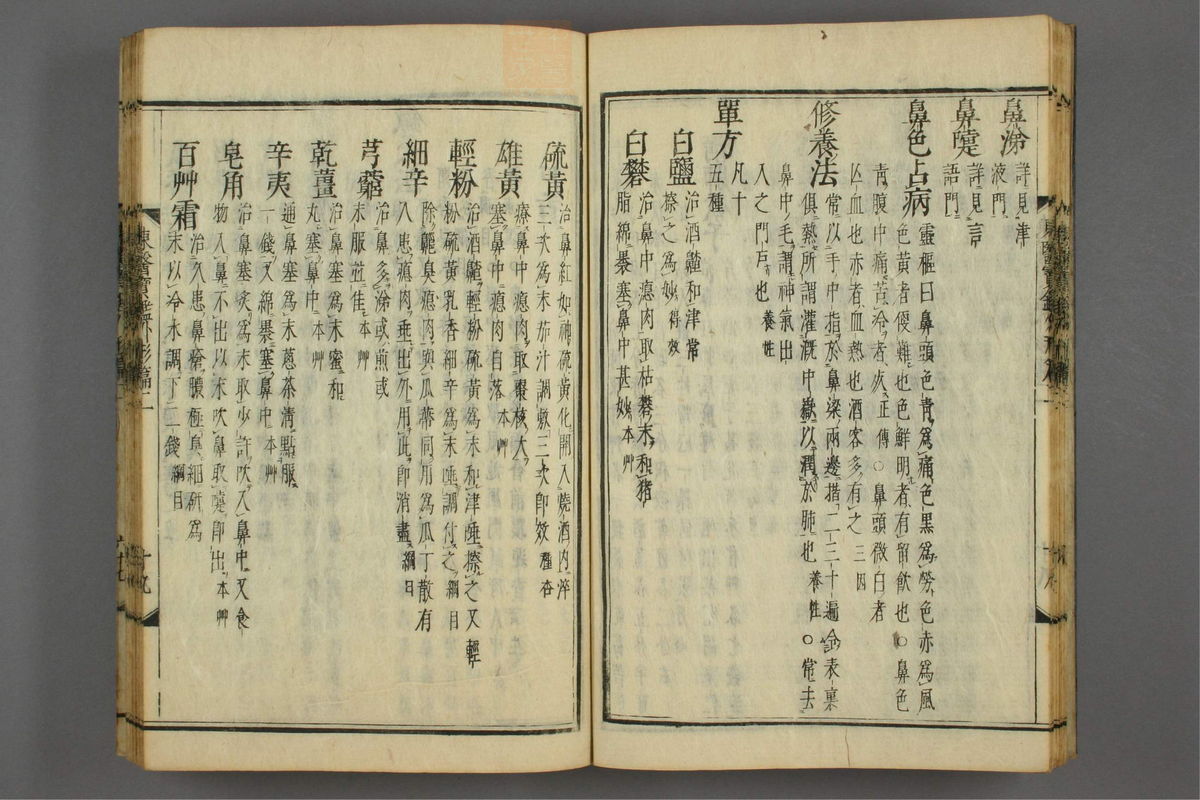 鼻涕
詳見津
液門
鼻嚏
詳見言
語門
鼻色占病
靈樞曰鼻頭色青爲痛色黑爲勞色赤爲風
色黃者便難也色鮮明者有留飮也○鼻色
青腹中痛苦冷者死正傳○鼻頭微白者
亾血也赤者血熱也酒客多有之三因
修養法
常以手中指於鼻梁兩邊揩二三十遍令表裏
俱熱所謂灌漑中嶽以潤於肺也養性○常去
鼻中毛謂神氣出
入之門戶也養性
單方
凡十
五種
白鹽
治酒齄和津常
擦之爲妙得效
白礬
治鼻中瘜肉取枯礬末和猪
脂綿裹塞鼻中甚妙本艸
硫黃
治鼻紅如神硫黃化開入燒酒內淬
三次爲末茄汁調敷三二次卽效種杏
雄黃
療鼻中瘜肉取棗核大
塞鼻中瘜肉自落本艸
輕粉
治酒齄輕粉硫黃爲末和津唾擦之又輕
粉硫黃乳香細辛爲末唾調付之綱目
細辛
除齆臭瘜肉與瓜蒂同用爲瓜丁散有
人患瘜肉垂出外用此卽消盡綱目
芎藭
治鼻多涕或煎或
末服並佳本艸
乾薑
治鼻塞爲末蜜和
丸塞鼻中本艸
辛夷
通鼻塞爲末葱茶淸點服
一錢又綿裹塞鼻中本艸
皂角
治鼻塞炙爲末取少許吹入鼻中又食
物入鼻不出以末吹鼻取嚏卽出本艸
百艸霜
治久患鼻瘡膿極臭細硏爲
末以冷水調下二錢綱目